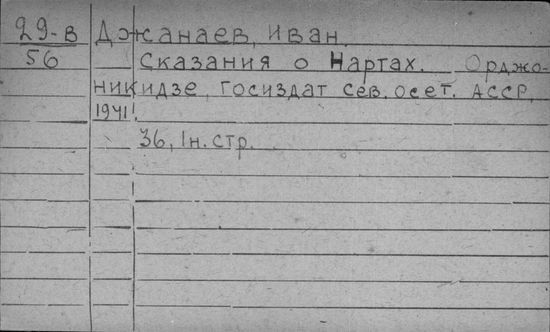 29-В Джанаев, Иван.
56 Сказания о Нартах. Орджо-
никидзе, Госиздат Сев. Осет. АССР,
1941.
36, 1н. стр.